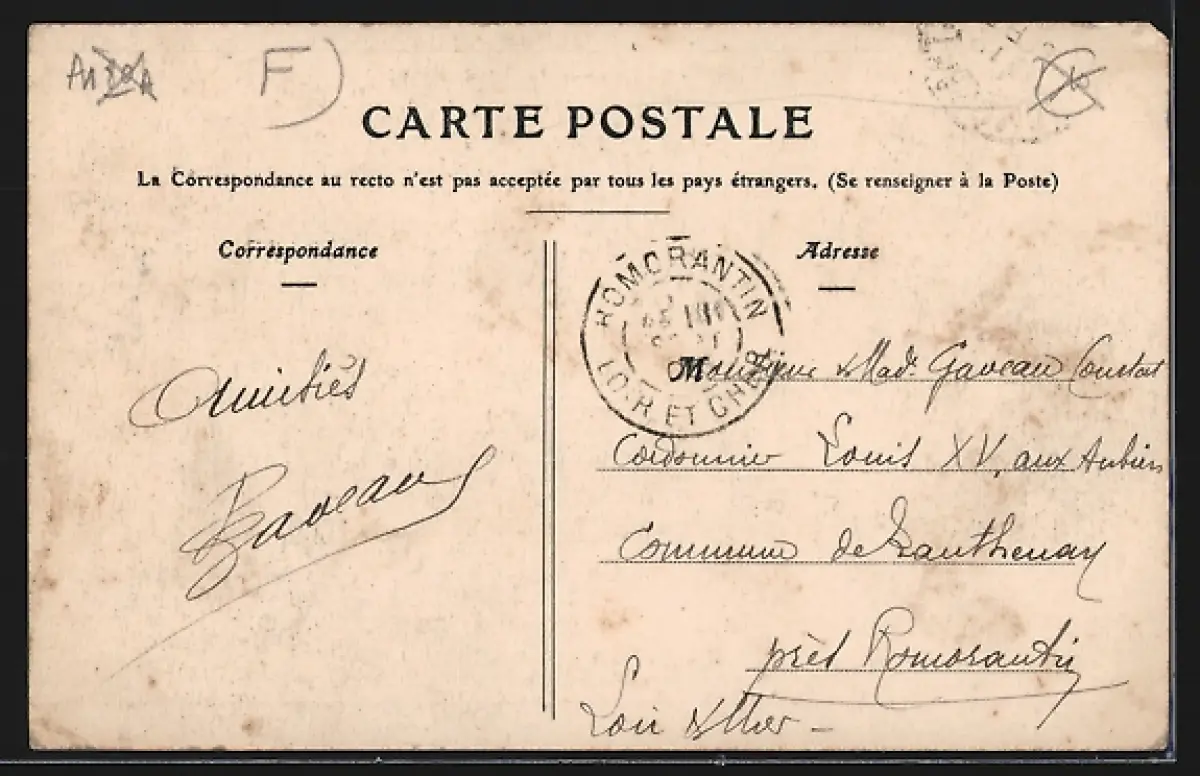 F)
CARTE POSTALE
La Correspondance au recto n'est pas acceptée par tous les pays étrangers. (Se renseigner à la Poste)
Correspondance
Adresse
ROMORANTIN
LOIR ET CHER
Amitiés
Gaveau
Monsieur & Mad. Gaveau Constat
Cordonnier Louis XV, aux Aubiers
Commune de Lanthenay
près Romorantin
Loir & Cher -